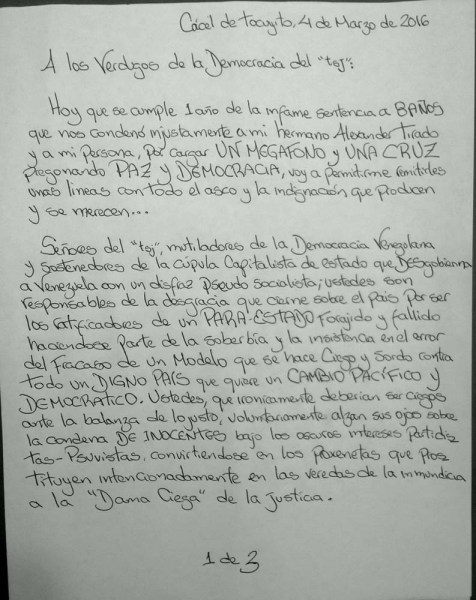 Cácel de tocuyito, 4 de Marzo de 2016
A los Verdugos de la Democracia del "tsj":
Hoy que se cumple 1 año de la infame sentencia a 8 AÑOS
que nos condenó injustamente a mi hermano Alexander Tirado
y a mi persona, por cargar UN MEGAFONO y UNA CRUZ
pregonando PAZ y DEMOCRACIA, voy a permitirme remitirles
unas lineas con todo el asco y la indignación que producen
y se merecen...
Señores del "tsj", mutiladores de la Democracia Venezolana
y sostenedores de la cúpula Capitalista de estado que DESgobierna
a Venezuela con un disfraz pseudo socialista; ustedes son
responsables de la desgracia que cierne sobre el País por ser
los ratificadores de un PARA-ESTADO Forajido y fallido
haciendose parte de la soberbia y la insistencia en el error
del Fracaso de un Modelo que se hace Ciego y Sordo contra
todo un DIGNO PAÍS que quiere un CAMBIO PACÍFICO y
DEMOCRATICO. Ustedes, que ironicamente deberian ser ciegos
ante la balanza de lo justo, voluntariamente alzan sus ojos sobre
la condena DE INOCENTES bajo los oscuros intereses Partidis
tas-Psuvistas, convirtiendose en los Proxenetas que Pros
tituyen intencionadamente en las veredas de la inmundicia
a la "Dama Ciega" de la justicia.
1 de 3